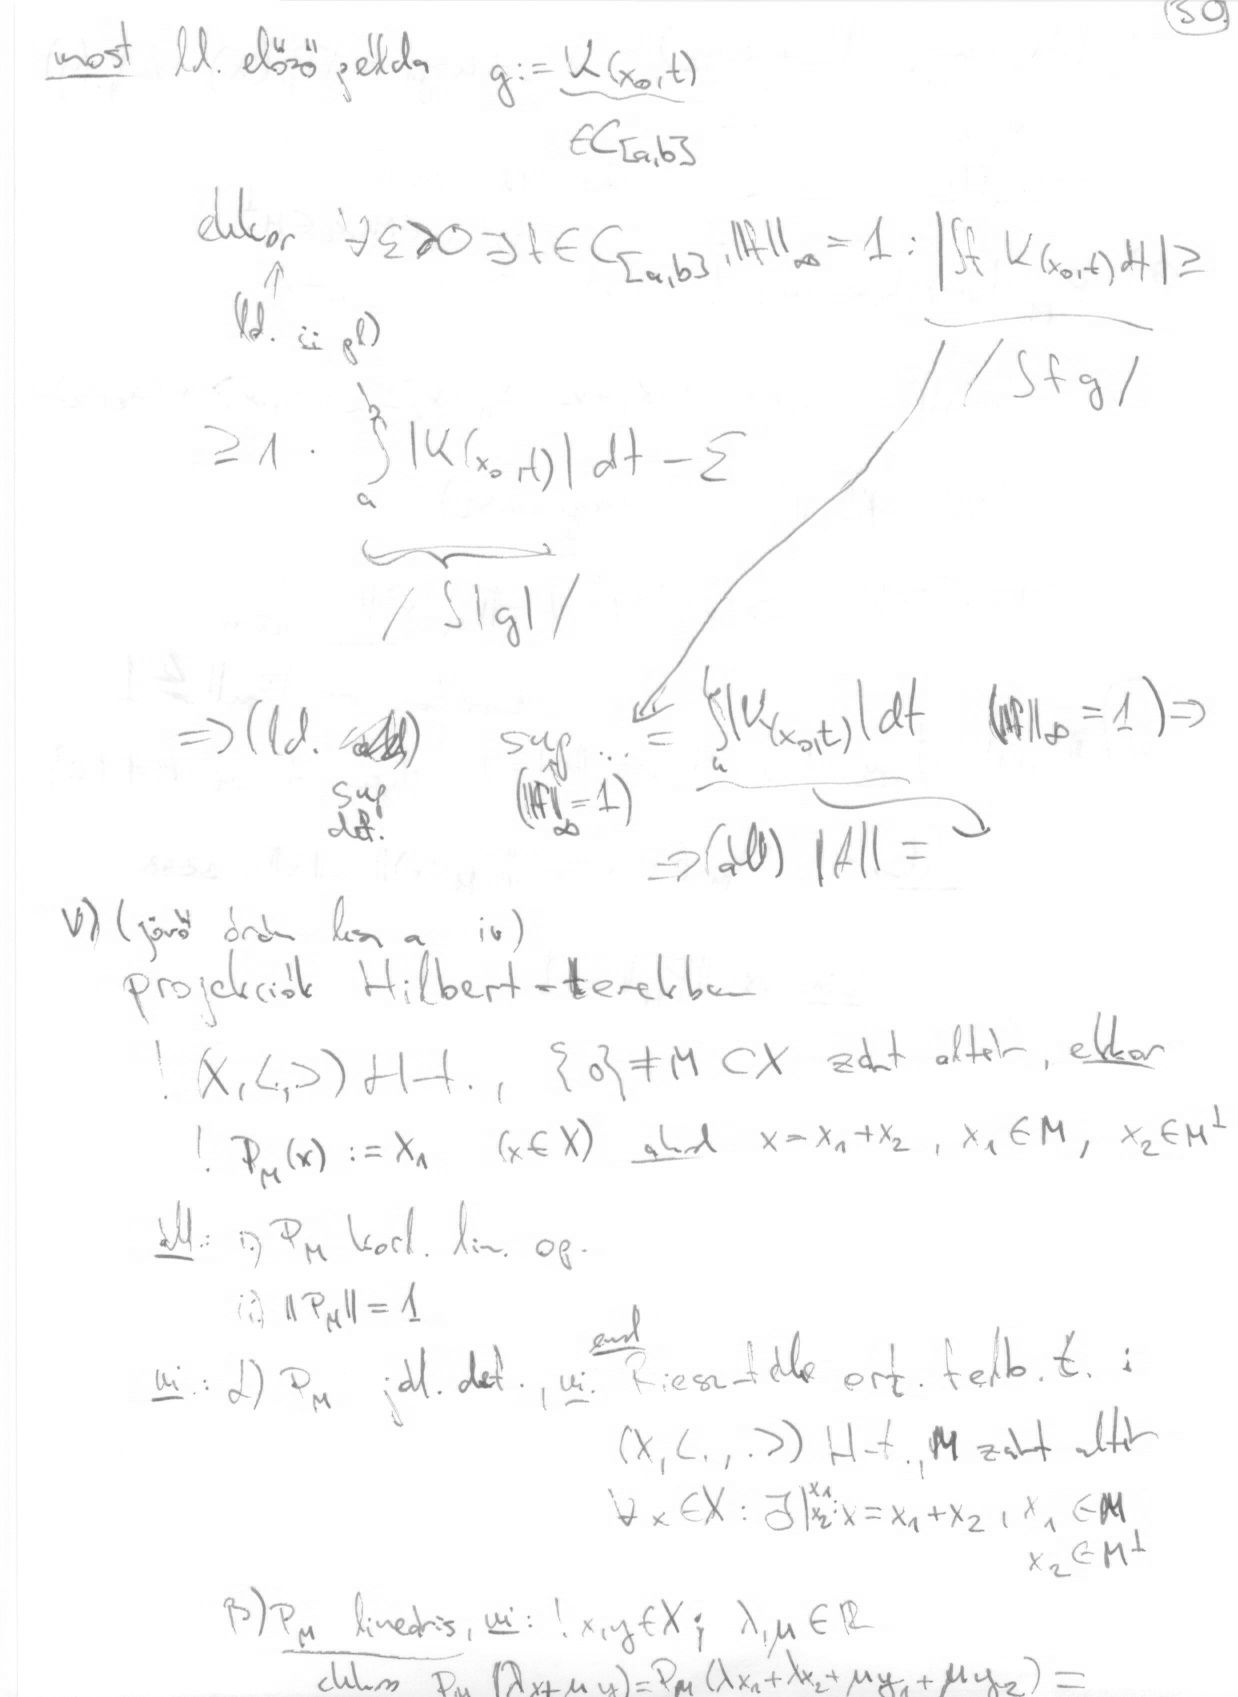 50.
most ld. előző példa g := K(x₀,t)
∈C[a,b]
ekkor ∀ε>0 ∃f∈C[a,b], ‖f‖∞ = 1 : |∫f K(x₀,t) dt| ≥
(ld. ii pl) /∫fg/
≥ 1 · ∫ₐᵇ |K(x₀,t)| dt − ε
/∫|g|/
⇒ (ld. sup ... = ∫ₐᵇ |K(x₀,t)| dt (‖f‖∞ = 1) ⇒
sup def. (‖f‖∞ = 1)
⇒ (áll) ‖A‖ =
v) (jövő órán lesz a iv)
projekciók Hilbert-terekben
! (X,<,>) H-t., {0}≠M⊂X zárt altér, ekkor
! P_M(x) := x₁ (x∈X) ahol x = x₁+x₂, x₁∈M, x₂∈M⊥
áll: i) P_M korl. lin. op.
ii) ‖P_M‖ = 1
ui: α) P_M jól. def., ui. Riesz-féle ort. felb. t. :
(X,<.,.>) H-t., M zárt altér
∀x∈X : ∃| x₁ x₂ : x = x₁+x₂, x₁∈M
x₂∈M⊥
β) P_M lineáris, ui: ! x,y∈X; λ,μ∈ℝ
ekkor P_M(λx+μy) = P_M(λx₁+λx₂+μy₁+μy₂) =